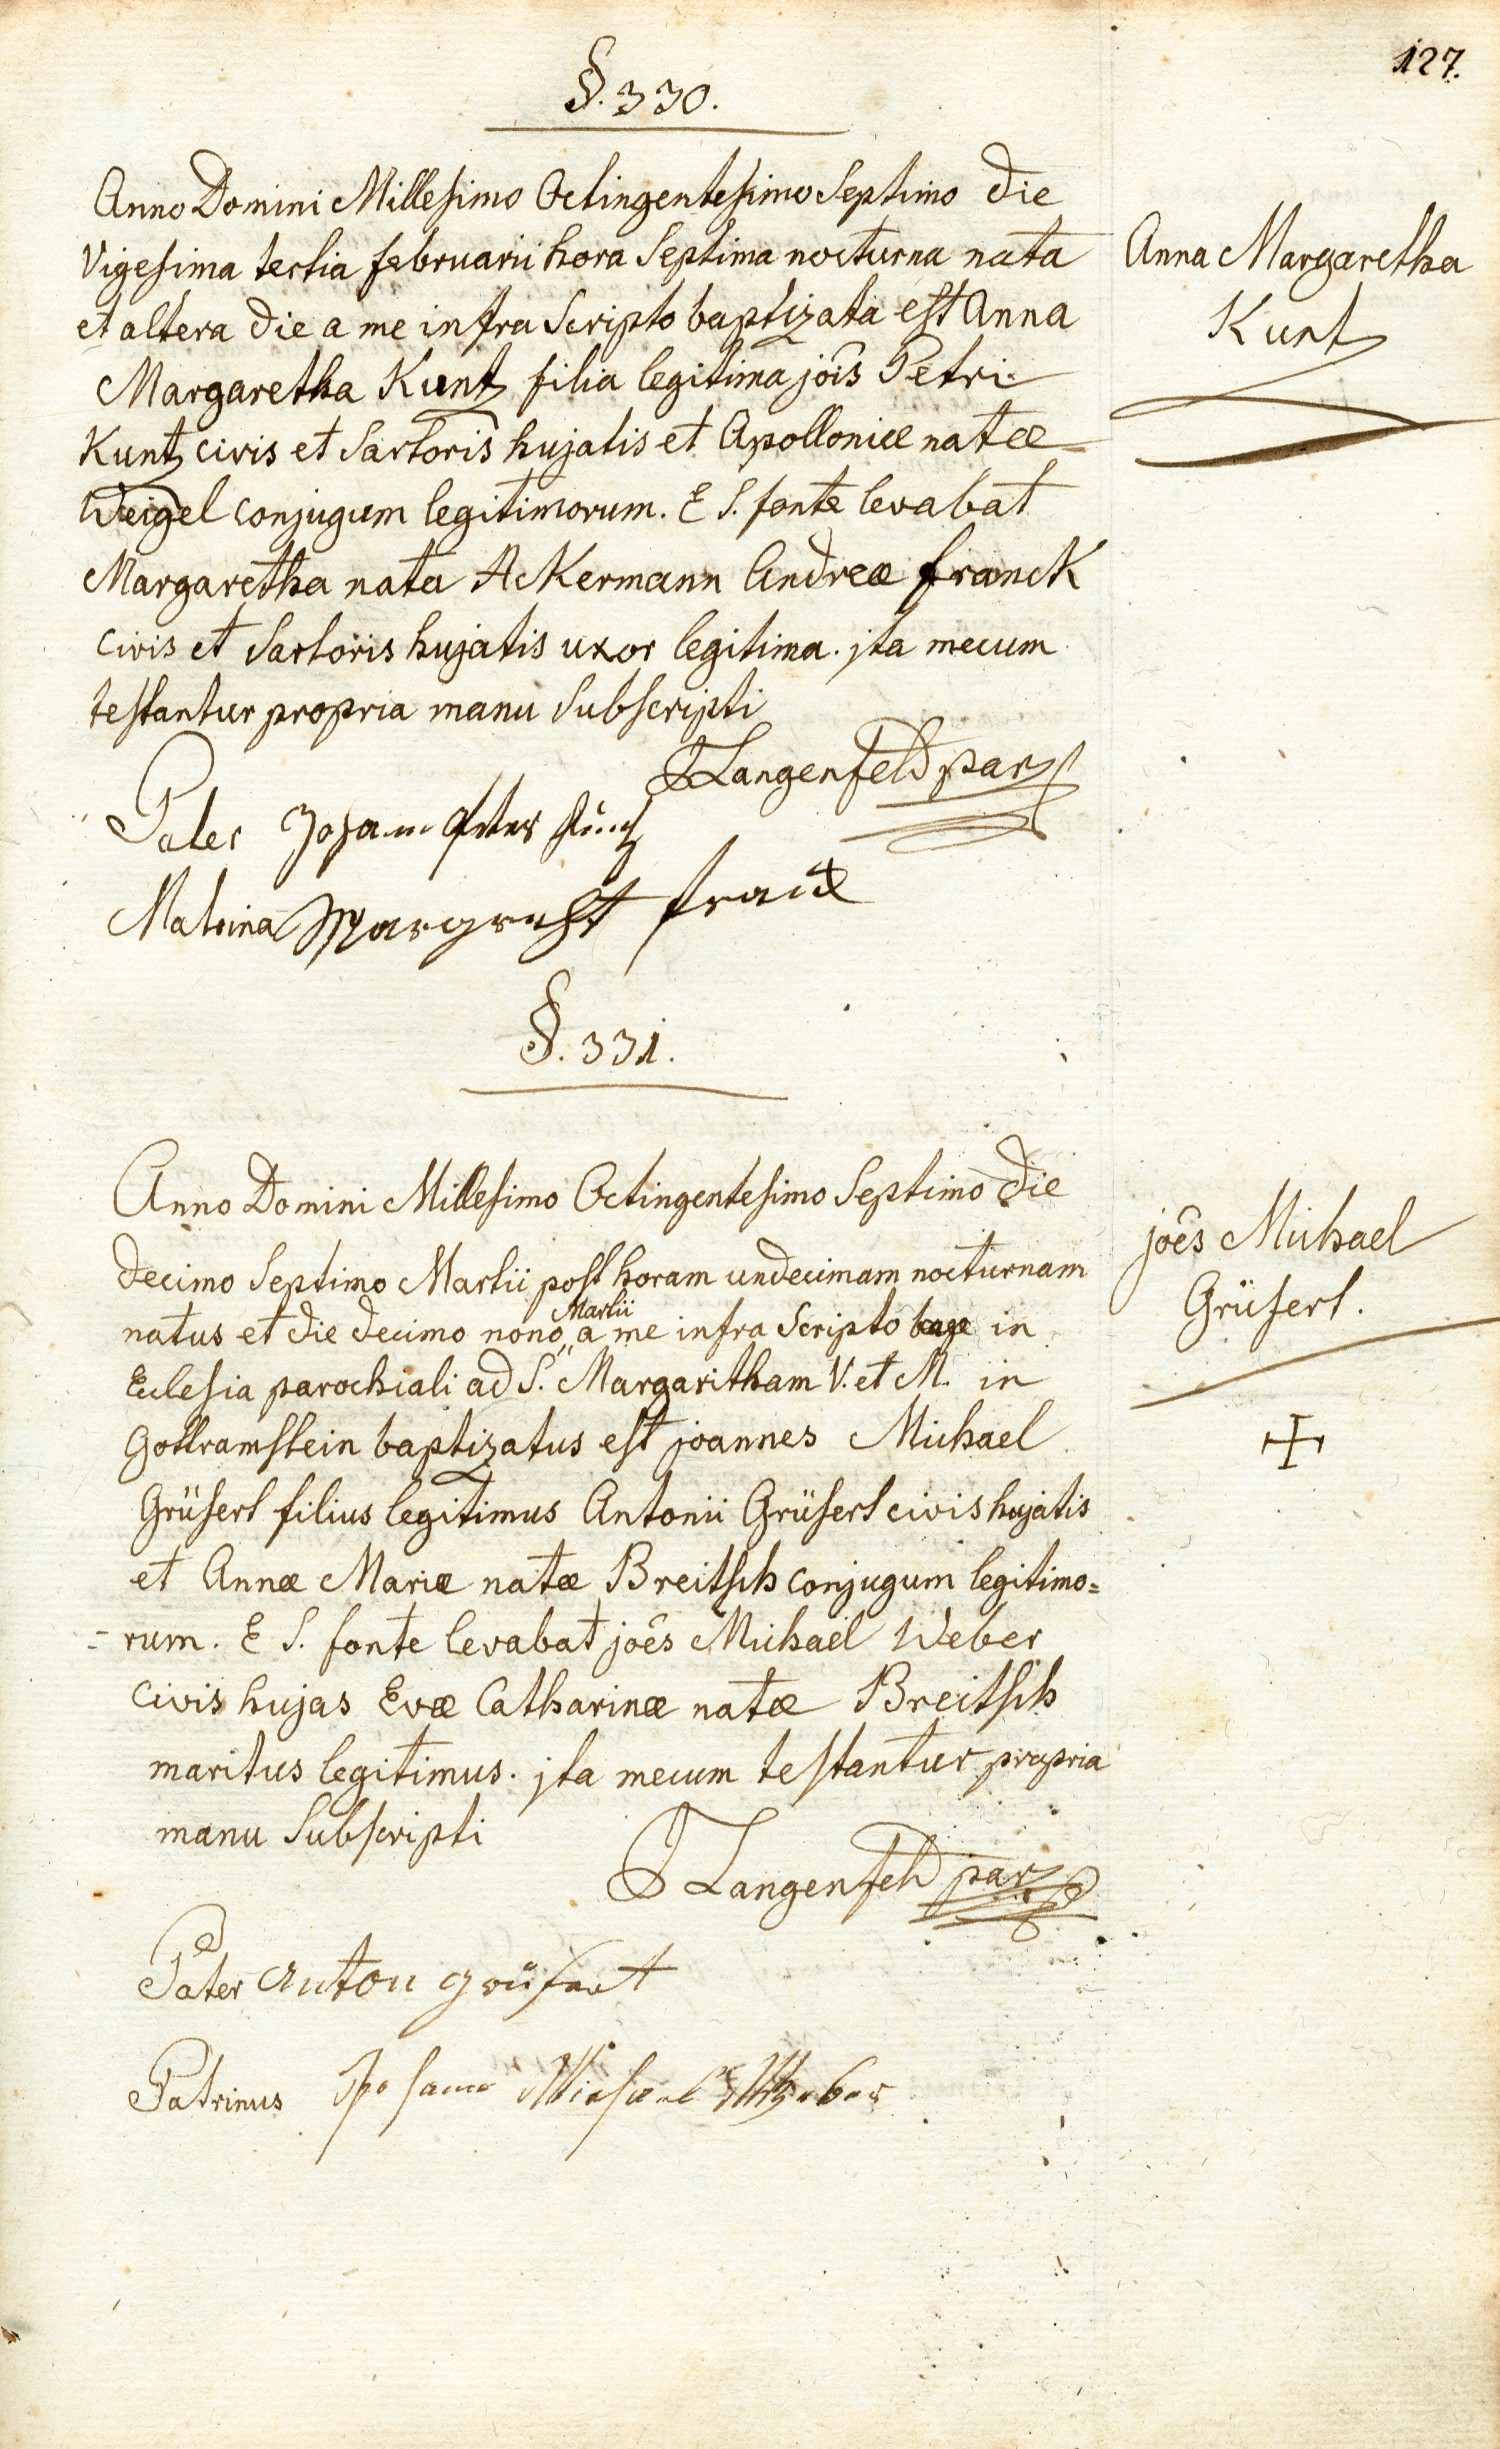 127.
§. 330.
Anno Domini Millesimo Octingentesimo Septimo die
Vigesima tertia februarii hora Septima nocturna nata
et altera die a me infra Scripto baptizata est Anna
Margaretha Kuntz filia legitima jois Petri
Kuntz civis et Sartoris hujatis et Apolloniæ natæ
Weigel conjugum legitimorum. E S. fonte levabat
Margaretha nata Ackermann Andreæ franck
civis et Sartoris hujatis uxor legitima. jta mecum
testantur propria manu Subscripti
JLangenfeld par
Pater Johann Peter Kuntz
Matrina Margreht franck
Anna Margaretha
Kuntz
§. 331.
Anno Domini Millesimo Octingentesimo Septimo die
decimo Septimo Martii post horam undecimam nocturnam
natus et die decimo nono Martii a me infra Scripto in
Eclesia parochiali ad S. Margaritham V. et M. in
Gottramstein baptizatus est joannes Michael
Grüsert filius legitimus Antonii Grüsert civis hujatis
et Annæ Mariæ natæ Breitsch conjugum legitimo=
=rum. E S. fonte levabat joês Michael Weber
civis hujas Evæ Catharinæ natæ Breitsch
maritus legitimus. jta mecum testantur propria
manu Subscripti
J Langenfeld par
Pater Anton Grüsert
Patrinus Johann Michael Weber
joês Michael
Grüsert.